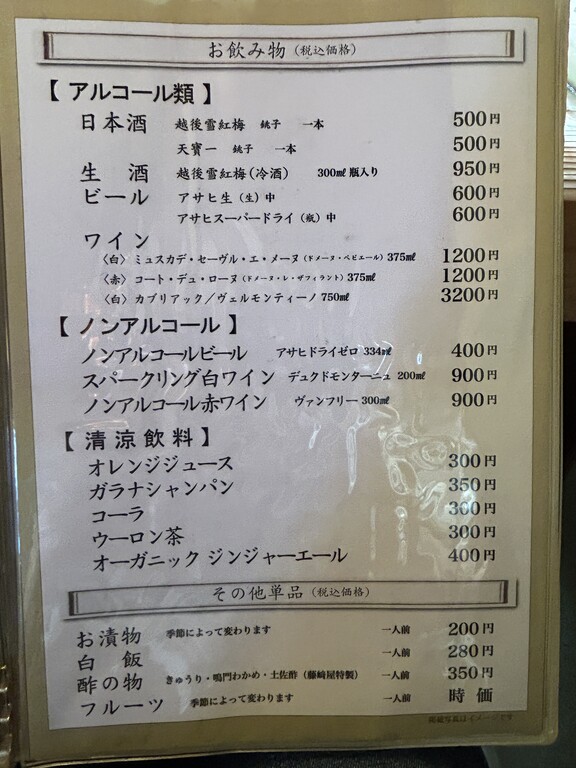 お飲み物（税込価格）
【アルコール類】
日本酒 越後雪紅梅 銚子 一本 500円
天寶一 銚子 一本 500円
生酒 越後雪紅梅（冷酒） 300㎖瓶入り 950円
ビール アサヒ生（生）中 600円
アサヒスーパードライ（瓶）中 600円
ワイン
〈白〉ミュスカデ・セーヴル・エ・メーヌ（ドメーヌ・ペピエール）375㎖ 1200円
〈赤〉コート・デュ・ローヌ（ドメーヌ・レ・ザフィラント）375㎖ 1200円
〈白〉カブリアック／ヴェルモンティーノ 750㎖ 3200円
【ノンアルコール】
ノンアルコールビール アサヒドライゼロ 334㎖ 400円
スパークリング白ワイン デュクドモンターニュ 200㎖ 900円
ノンアルコール赤ワイン ヴァンフリー 300㎖ 900円
【清涼飲料】
オレンジジュース 300円
ガラナシャンパン 350円
コーラ 300円
ウーロン茶 300円
オーガニック ジンジャーエール 400円
その他単品（税込価格）
お漬物 季節によって変わります 一人前 200円
白飯 一人前 280円
酢の物 きゅうり・鳴門わかめ・土佐酢（藤崎屋特製） 一人前 350円
フルーツ 季節によって変わります 一人前 時価